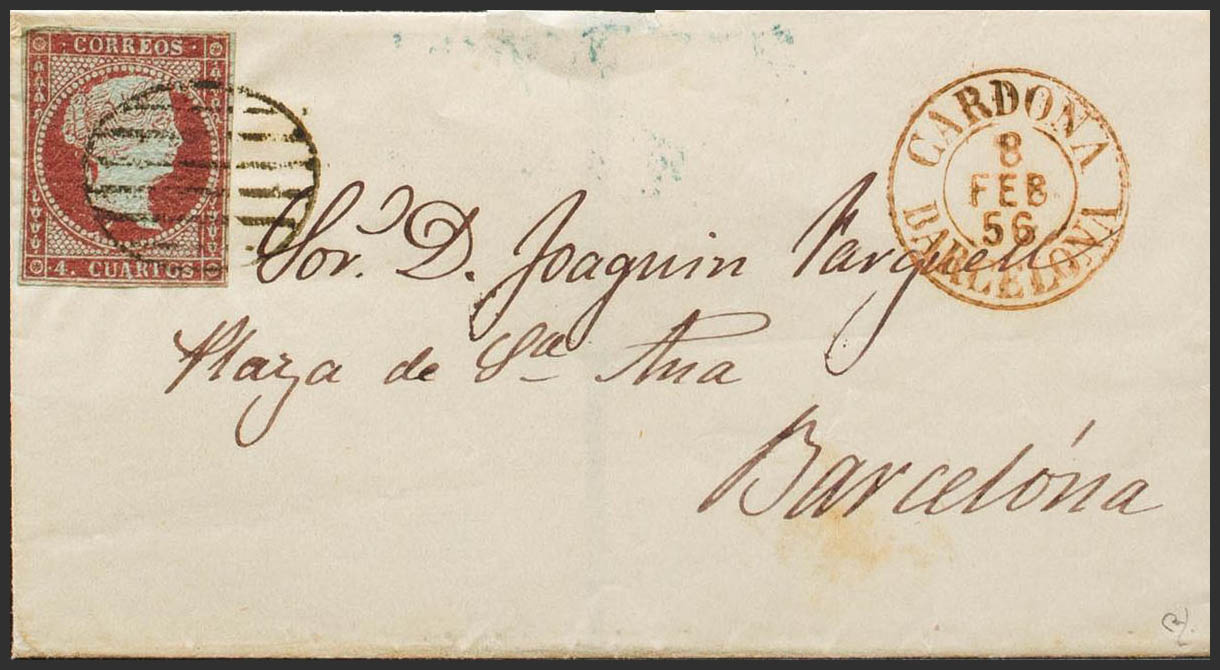 CORREOS
4. CUARTOS
CARDONA
8
FEB
56
BARCELONA
Sor. D. Joaquin Farguell
Plaza de Sta Ana
Barcelóna